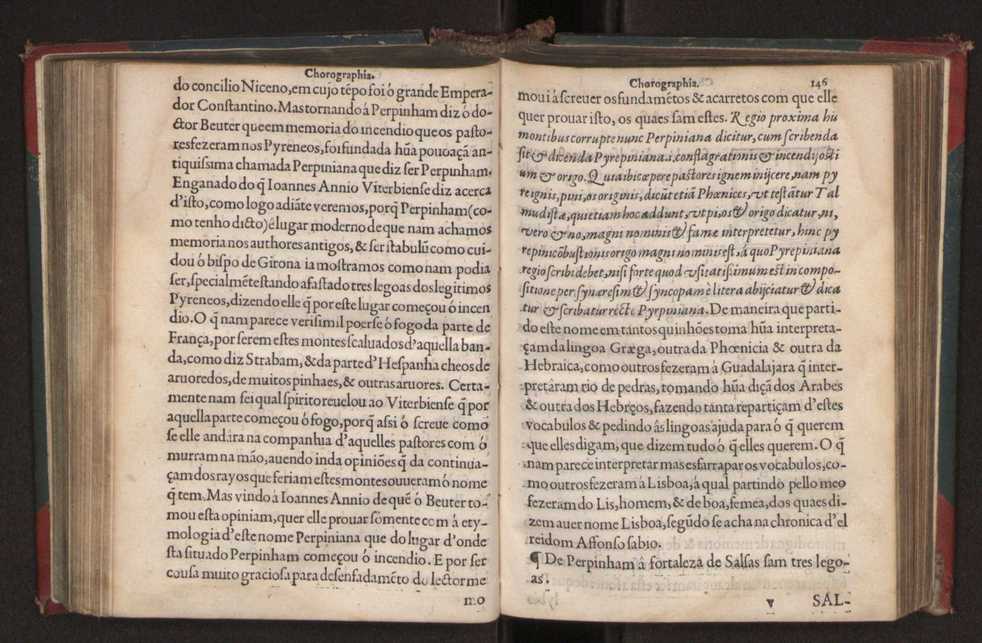 Chorographia.
do concilio Niceno,em cujo tẽpo foi ó grande Empera-
dor Conſtantino. Mas tornando á Perpinham diz ó do-
ctor Beuter que em memoria do incendio que os paſto-
res fezeram nos Pyreneos, foi fundada hũa pouoaçã an-
tiquiſsima chamada Perpiniana que diz ſer Perpinham.
Enganado do q̃ Ioannes Annio Viterbienſe diz acerca
d'iſto, como logo adiãte veremos, porq̃ Perpinham(co-
mo tenho dicto)é lugar moderno de que nam achamos
memoria nos authores antigos, & ſer ſtabulũ como cui-
dou ó biſpo de Girona ia moſtramos como nam podia
ſer, ſpecialmẽte ſtando afaſtado tres legoas dos legitimos
Pyreneos, dizendo elle q̃ por eſte lugar começou ó incen
dio. O q̃ nam parece veriſimil poerſe ó fogo da parte de
França, por ſerem eſtes montes ſcaluados d'aquella ban-
da, como diz Strabam, & da parte d'Heſpanha cheos de
aruoredos, de muitos pinhaes, & outras aruores. Certa-
mente nam ſei qual ſpirito reuelou ao Viterbienſe q̃ por
aquella parte começou ó fogo, porq̃ aſsi ó ſcreue como
ſe elle andára na companhia d'aquelles paſtores com ó
murram na mão, auendo inda opiniões q̃ da continua-
çam dos rayos que feriam eſtes montes ouueram ó nome
q̃ tem. Mas vindo á Ioannes Annio de quẽ ó Beuter to-
mou eſta opiniam, quer elle prouar ſómente com á ety-
mologia d'eſte nome Perpiniana que do lugar d'onde
ſta ſituado Perpinham começou ó incendio. E por ſer
couſa muito gracioſa para deſenfadamẽto do lector me
mo
Chorographia. 146
moui á ſcreuer os fundamẽtos & acarretos com que elle
quer prouar iſto, os quaes ſam eſtes. Regio proxima his
montibus corrupte nunc Perpiniana dicitur, cum ſcribenda
ſit & dicenda Pyrepiniana.i. conflagrationis & incendij oſsi
um & origo. Quia ibi cœpere paſtores ignem inijcere, nam py
re ignis, pini, os originis, dicũt etiã Phœnices, vt teſtãtur Tal
mudiſtæ, qui etiam hoc addunt, vt pi, os & origo dicatur, ni,
vero & no, magni nominis & famæ interpretetur, hinc py
repini cõbuſtionis origo magni nominis eſt, á quo Pyrepiniana
regio ſcribi debet, niſi forte quod vſitatiſsimum eſt in compo-
ſitione per ſynæreſim & ſyncopam è litera abijciatur & dica
tur & ſcribatur recte Pyrpiniana. De maneira que parti-
do eſte nome em tantos quinhões toma hũa interpreta-
çam da lingoa Græga, outra da Phœnicia & outra da
Hebraica, como outros fezeram à Guadalajara q̃ inter-
pretáram rio de pedras, tomando hũa diçã dos Arabes
& outra dos Hebreos, fazendo tanta repartiçam d'eſtes
vocabulos & pedindo ás lingoas ajuda para ó q̃ querem
que elles digam, que dizem tudo ó q̃ elles querem. O q̃
nam parece interpretar mas esfarrapar os vocabulos, co-
mo outros fezeram à Lisboa, á qual partindo pello meo
fezeram do Lis, homem, & de boa, femea, dos quaes di-
zem auer nome Lisboa, ſegũdo ſe acha na chronica d'el
rei dom Affonſo ſabio.
¶ De Perpinham â fortaleza de Salſas ſam tres lego-
as.
v SAL-